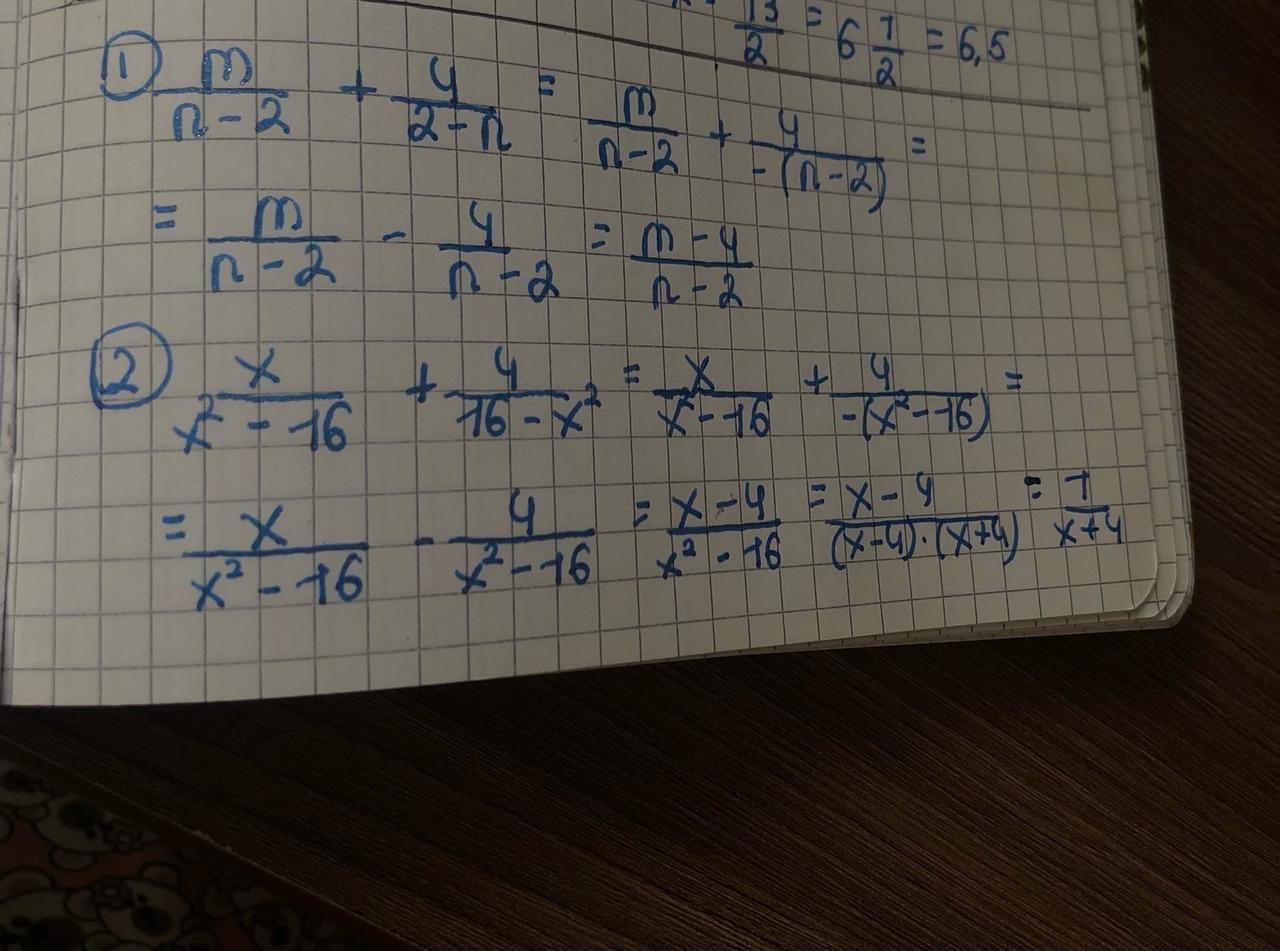 13/2 = 6 1/2 = 6,5
① m/(n-2) + 4/(2-n) = m/(n-2) + 4/(-(n-2)) =
= m/(n-2) - 4/(n-2) = (m-4)/(n-2)
② x/(x²-16) + 4/(16-x²) = x/(x²-16) + 4/(-(x²-16)) =
= x/(x²-16) - 4/(x²-16) = (x-4)/(x²-16) = (x-4)/((x-4)·(x+4)) = 1/(x+4)